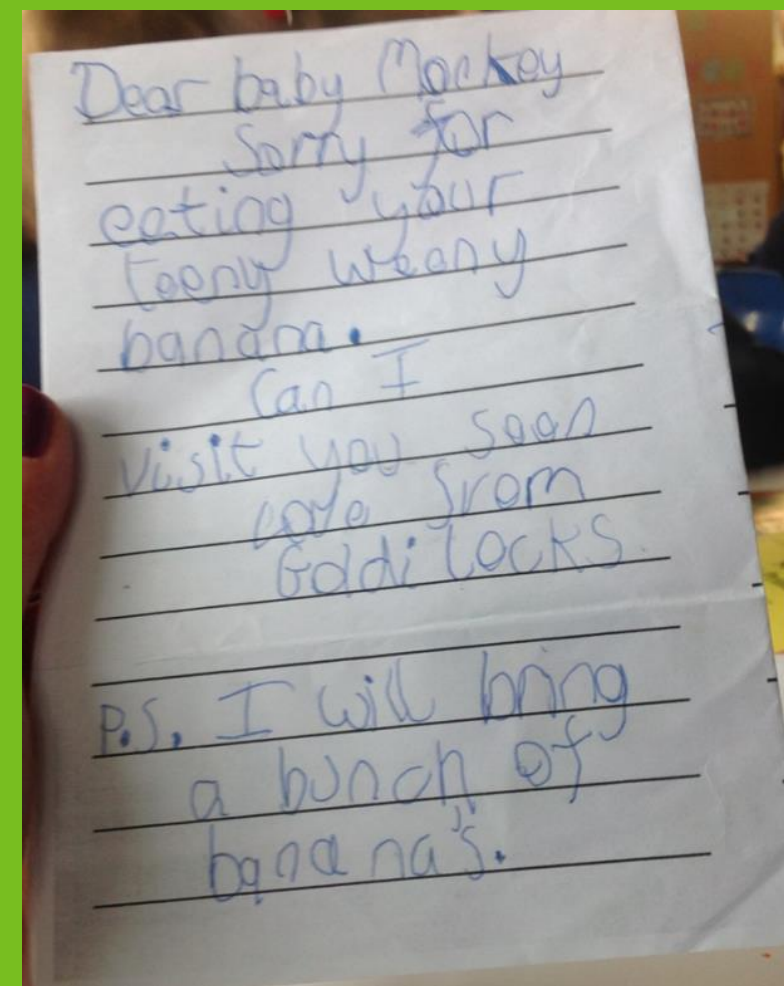 Dear baby Monkey
Sorry for
eating your
teeny weeny
banana.
Can I
visit you soon
love from
Goldi locks.
P.S. I will bring
a bunch of
banana's.